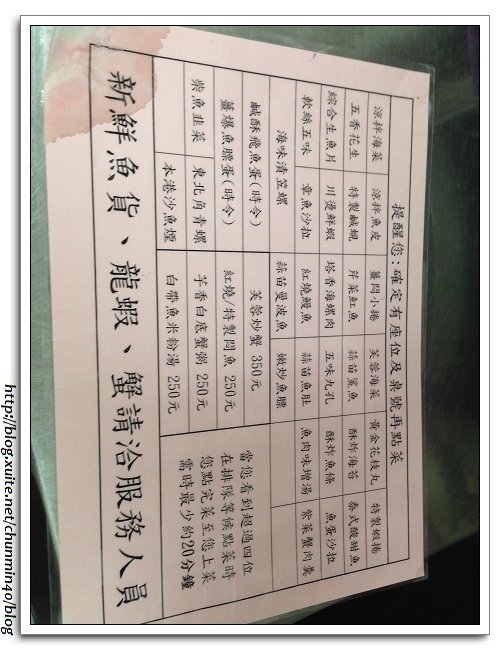 提醒您:確定有座位及桌號再點菜
涼拌海菜 涼拌魚皮 薑悶小捲 芙蓉海菜 黃金花枝丸 特製蝦捲
五香花生 特製鹹蜆 芹菜魟魚 蒜苗鯊魚 酥炸海苔 泰式酸甜魚
綜合生魚片 川燙鮮蝦 塔香海螺肉 五味九孔 酥炸魚條 魚蛋沙拉
軟絲五味 章魚沙拉 紅燒鰻魚 蒜苗魚肚 魚肉味增湯 紫菜蟹肉羹
海味漬笠螺 蒜苗曼波魚 嫩炒魚膘
鹹酥飛魚蛋(時令) 芙蓉炒蟹 350元
薑爆魚膘蛋(時令) 紅燒/特製悶魚 250元
柴魚韭菜 東北角青螺 芋香白底蟹粥 250元
本港沙魚煙 白帶魚米粉湯 250元
當您看到超過四位
在排隊等候點菜時
您點完菜至您上菜
需時最少約20分鐘
新鮮魚貨、龍蝦、蟹請洽服務人員
http://blog.xuite.net/chunmin40/blog